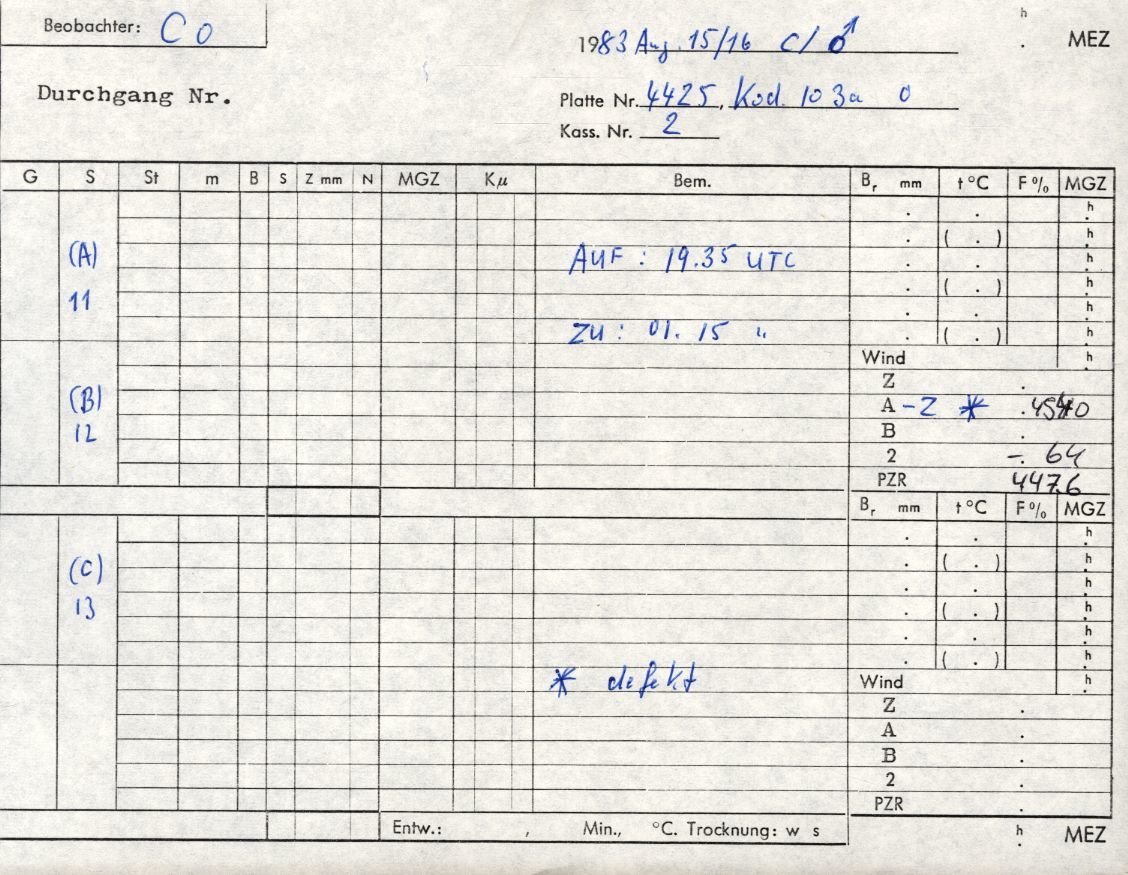 Beobachter: Co
h
1983 Aug. 15/16 C/♂ . MEZ
Durchgang Nr.
Platte Nr. 4425, Kod. 103a O
Kass. Nr. 2
G S St m B S Z mm N MGZ Kμ Bem. Br mm t°C F% MGZ
. . h
. ( . ) h
(A) AUF : 19.35 UTC . . h
11 . ( . ) h
. . h
ZU : 01.15 " . ( . ) h
Wind h
Z .
(B) A -Z *
12 B .
2 -. 64
PZR 447.6
Br mm t°C F% MGZ
. . h
(C) . ( . ) h
. . h
13 . ( . ) h
. . h
. ( . ) h
* defekt Wind h
Z .
A .
B .
2
PZR .
Entw.: , Min., °C. Trocknung: w s
h
. MEZ